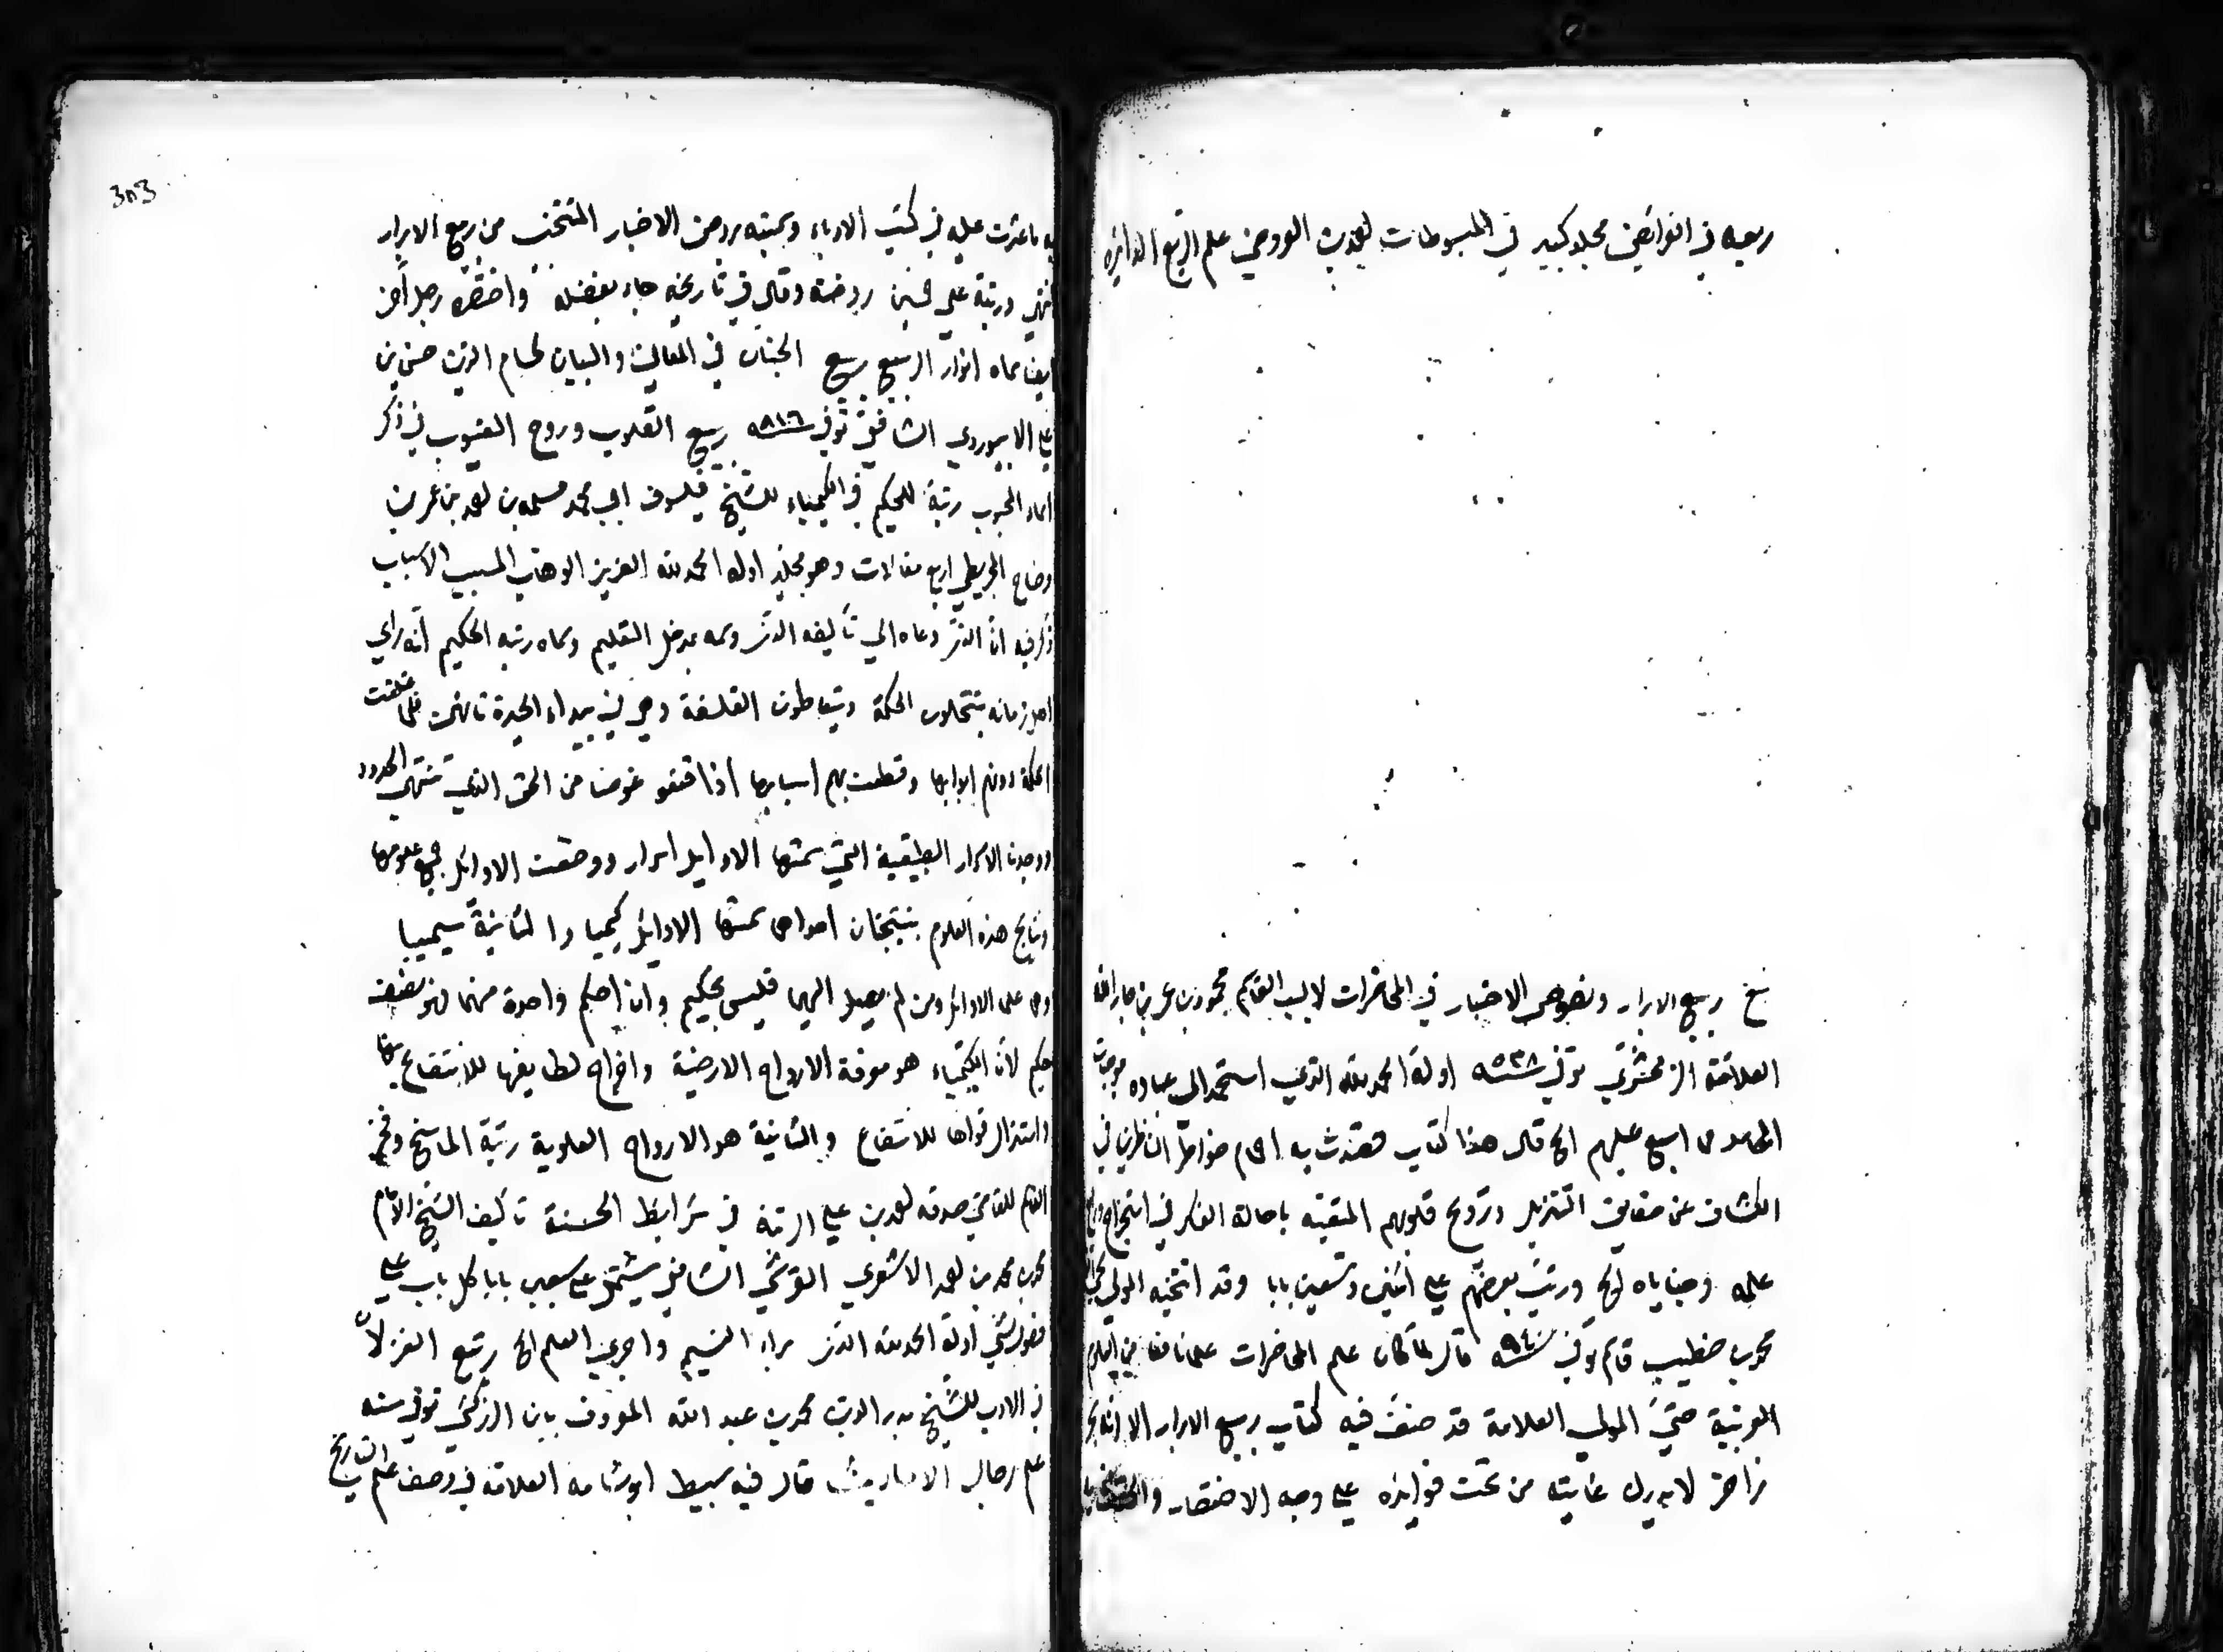 ربعيه في الفرائض مجلد كبير في المبسوطات لمحمد بن العروضي علم الربع الدائرة
ربيع الابرار ونصوص الاخبار في المحاضرات لابي القاسم محمود بن عمر بن جار الله
العلامة الزمخشري توفي سنه ٥٣٨ اوله الحمد لله الذي استحمد الى عباده موجبات
المحامد اسبغ عليهم الخ قال هذا كتاب قصدت به اجمام خواطر الناظرين في
الكشاف عن حقايق التنزيل وترويح قلوبهم المتعبة باجالة الفكر في استخراج ودايع
علمه وخباياه الخ ورتب بعضهم على اثنين وتسعين بابا وقد انتخبه المولى محيي الدين
محمد بن خطيب قاسم توفي سنه ٩٤٠ قال لما كان علم المحاضرات علما نافعا من العلوم
العربية حتى المولى العلامة قد صنف فيه كتاب ربيع الابرار الا انه بحر
زاخر لا يدرك غايته من تحت فوائده على وجه الاختصار والحقت
به ما عثرت عليه في كتب الادباء وسميته بروض الاخبار المنتخب من ربيع الابرار
انتهى ورتبه على خمسين روضة وقال في تاريخه جاء بفضله واختصره رجل آخر
ايضا سماه انوار الربيع ربيع الجنان في المعاني والبيان لحسام الدين حسن بن
علي الابيوردي الشافعي توفي سنه ٨١٦ ربيع القلوب وروح الغيوب في ذكر
اسماء المحبوب رتبة الحكيم في الكيمياء للشيخ فيلسوف ابي محمد مسلمه بن احمد بن عمر بن
وضاح المجريطي اربع مقالات وهو مجلد اوله الحمد لله العزيز الوهاب المسبب الاسباب
ذكر فيه ان الذي دعاه الى تأليفه الذي وسمه بمدخل التعليم وسماه رتبه الحكيم انه راى
اهل زمانه ينتحلون الحكمة ويتعاطون الفلسفة وهم في بيداء الحيرة تائهين قد غلقت
الحكمة دونهم ابوابها وقطعت بهم اسبابها
ووجدنا الاسرار الطبيقية التي سمتها الاوايل اسرار ووضعت الاوائل جميع علومها
ونتايج هذه العلوم بنتيجتان احداهما سمتها الاوائل كيميا والثانية سيميا
وهي علم الاوائل ومن لم يصل اليهما فليس بحكيم وان احكم واحدة منهما فهو نصف
حكيم لأن الكيمياء هو معرفة الارواح الارضية واخراج لطايفها للانتفاع بها
واستنزال قواها للانتفاع والثانية هو الارواح العلوية رتبة
للقاضي صدقه احمد بن علي الرتبة في شرايط الحسبة تأليف الشيخ الامام
محمد بن محمد بن احمد الاشعري القرشي الشافعي يشتمل على سبعين بابا كل باب على
فصول شتى اوله الحمد لله الذي براء النسيم واجرى القلم الخ رتع الغزلان
في الادب للشيخ بدر الدين محمد بن عبد الله المعروف بابن الزركشي توفي سنه
علم رجال الاحاديث قال فيه سبيط ابو شامه العلامة في وصف علم التاريخ